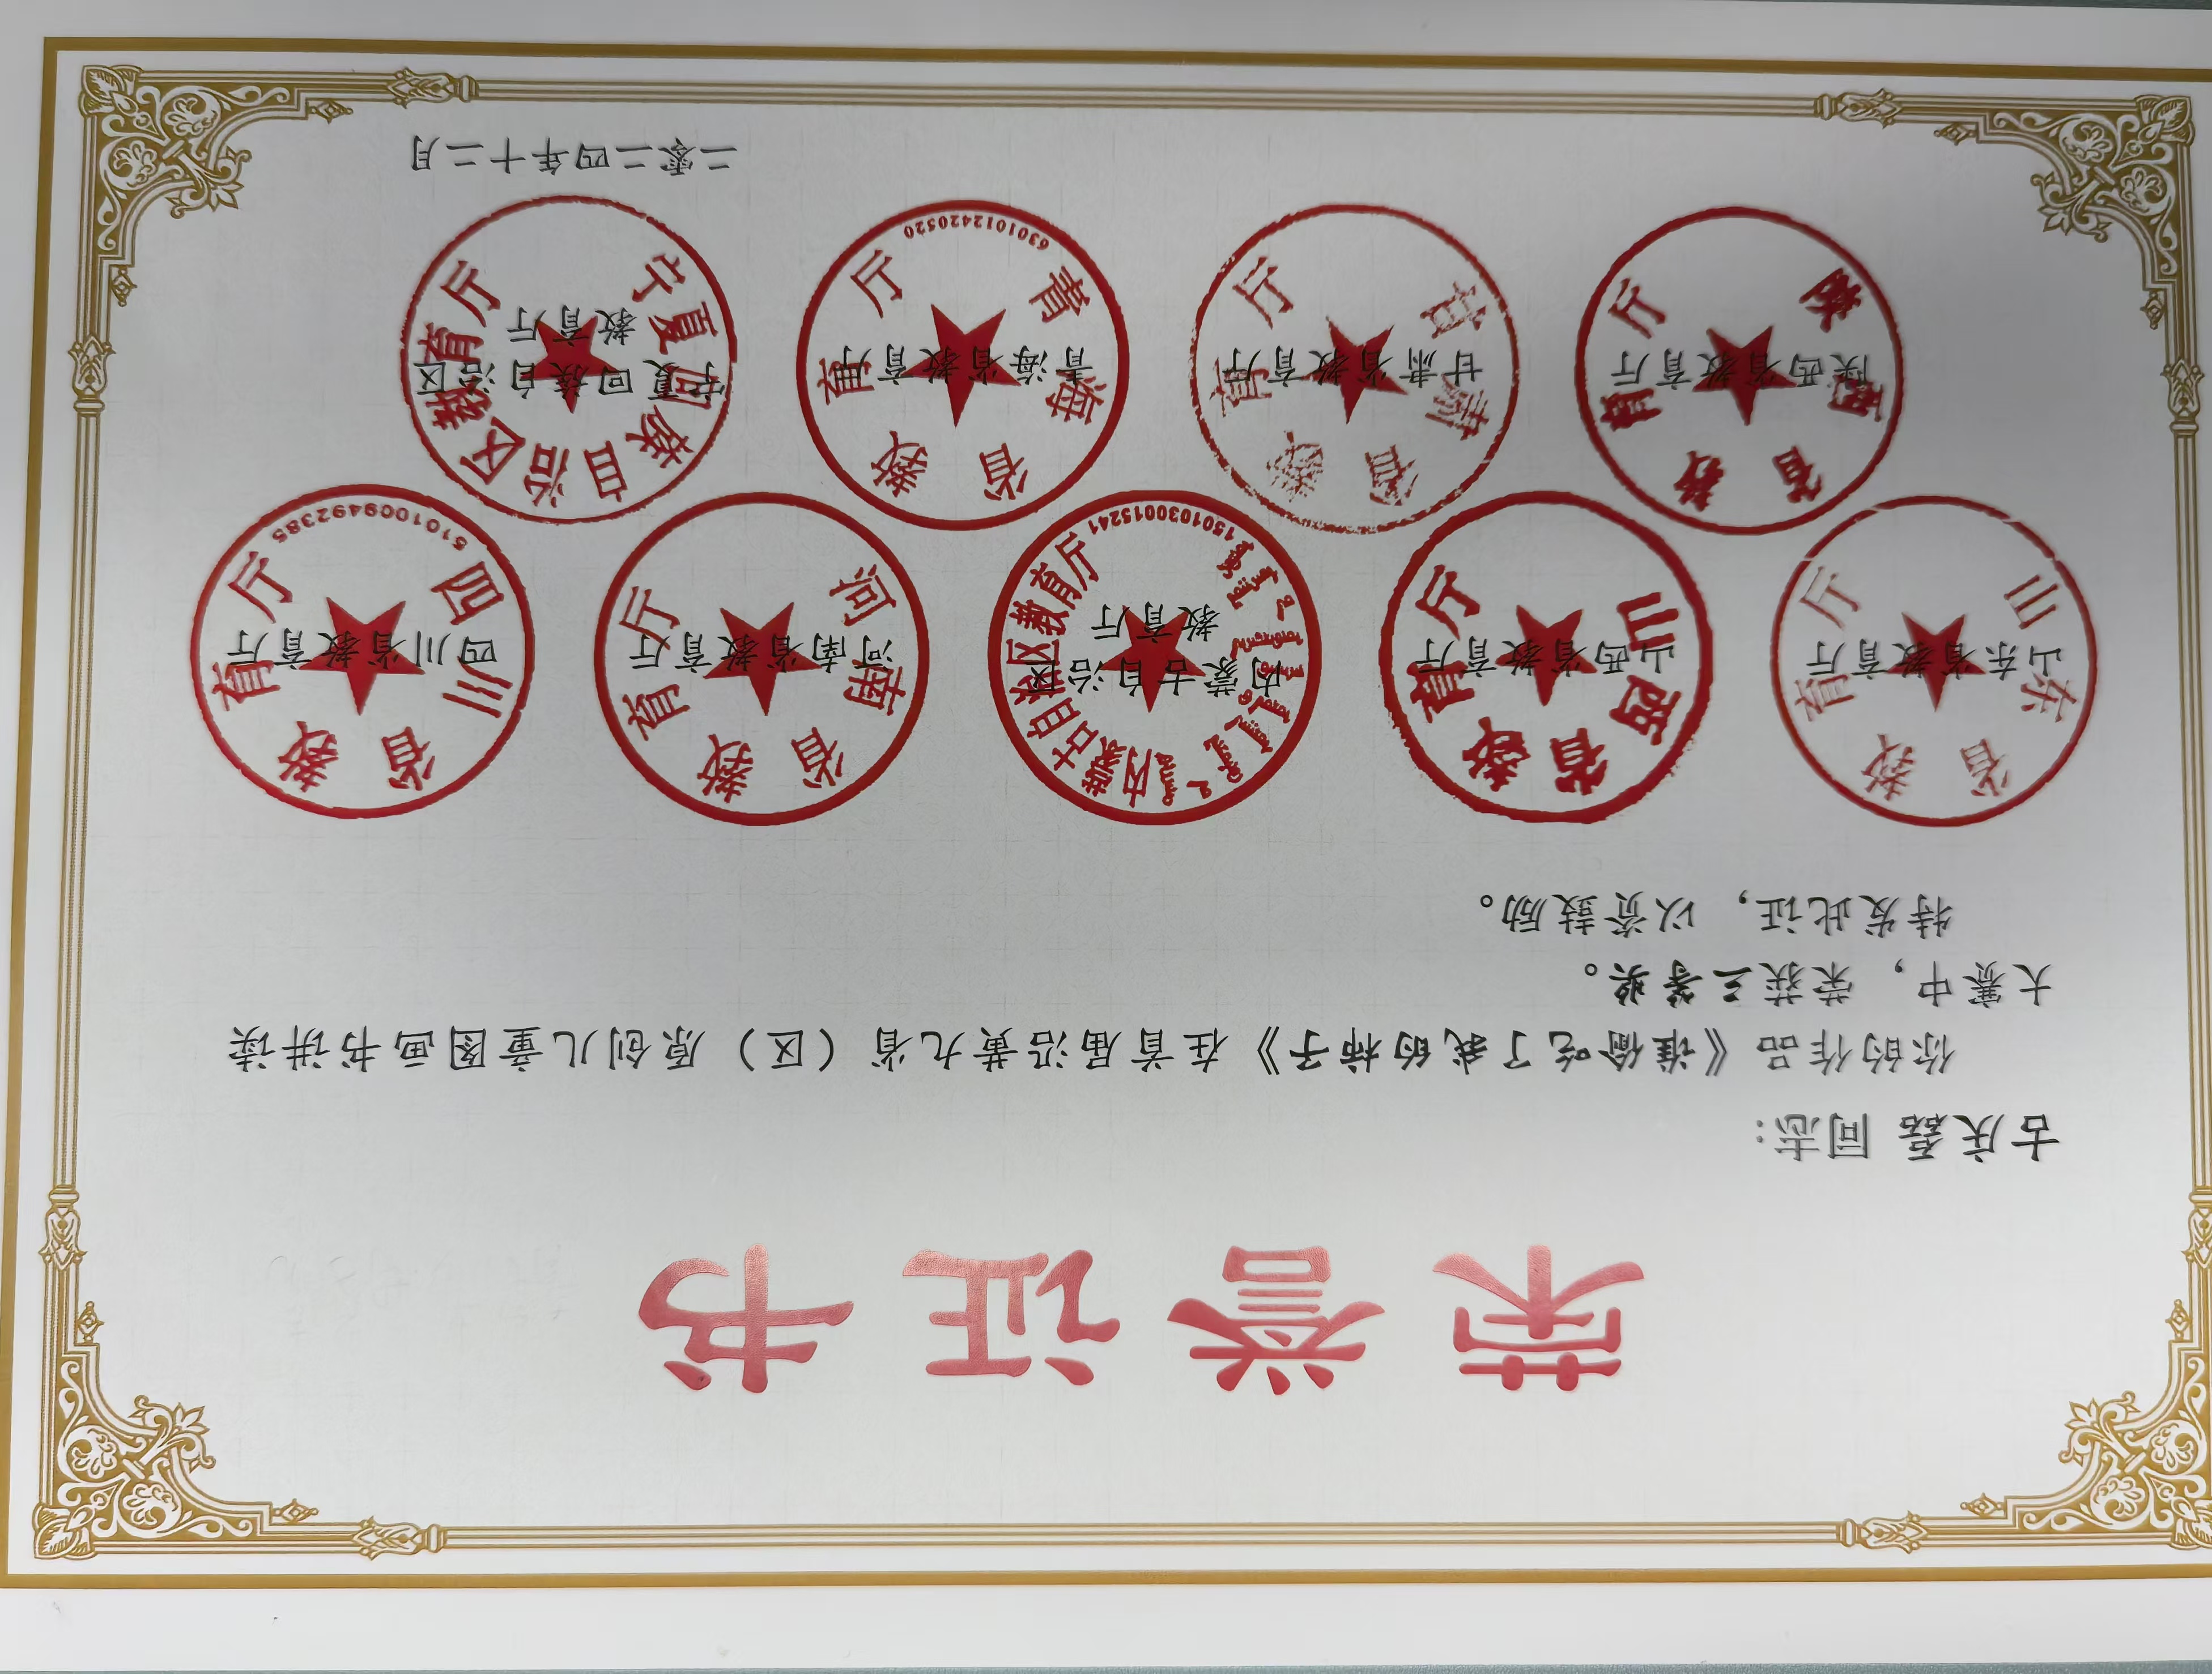 荣誉证书
古庆磊 同志：
你的作品《谁偷吃了我的柿子》在首届沿黄九省（区）原创儿童图画书讲读
大赛中，荣获三等奖。
特发此证，以资鼓励。
山东省教育厅
山东省教育厅
山西省教育厅
山西省教育厅
内蒙古自治区教育厅
内蒙古自治区
教育厅
1501030015241
河南省教育厅
河南省教育厅
四川省教育厅
四川省教育厅
5101009492385
陕西省教育厅
陕西省教育厅
甘肃省教育厅
甘肃省教育厅
青海省教育厅
青海省教育厅
6301012420520
宁夏回族自治区教育厅
宁夏回族自治区
教育厅
二零二四年十二月